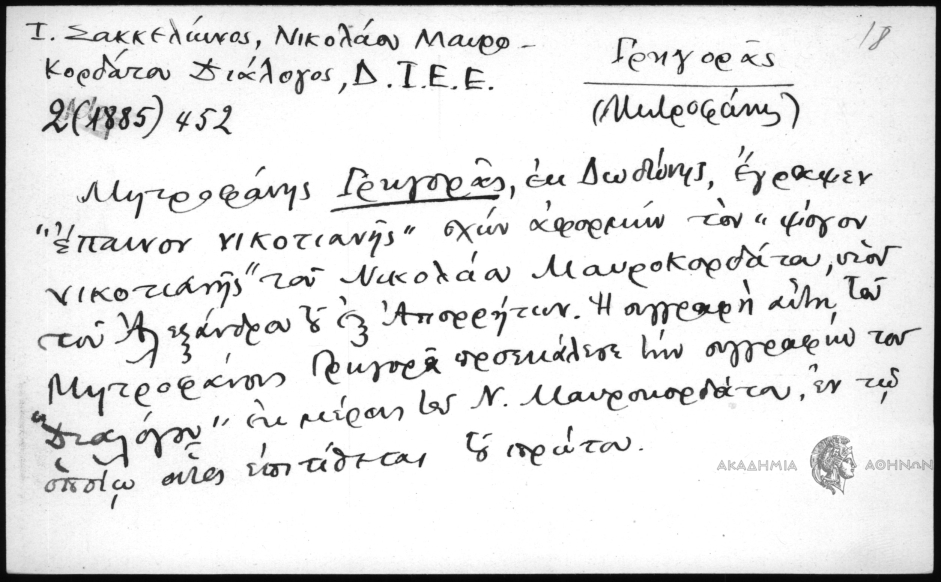 18
Ι. Σακκελίωνος, Νικολάου Μαυρο-
κορδάτου Διάλογος, Δ.Ι.Ε.Ε.
2(1885) 452
Γρηγορᾶς
(Μητροφάνης)
Μητροφάνης Γρηγορᾶς, ἐκ Δωδώνης, ἔγραψεν
"ἔπαινον νικοτιανῆς" σχών ἀφορμήν τὸν "ψόγον
νικοτιανῆς" τοῦ Νικολάου Μαυροκορδάτου, υἱοῦ
τοῦ Ἀλεξάνδρου τοῦ ἐξ Ἀπορρήτων. Ἡ συγγραφὴ αὕτη τοῦ
Μητροφάνους Γρηγορᾶ προσεκάλεσε τὴν συγγραφὴν τοῦ
"Διαλόγου" ἐκ μέρους τοῦ Ν. Μαυροκορδάτου, ἐν τῷ
ὁποίῳ οὗτος ἐπιτίθεται τοῦ πρώτου.
ΑΚΑΔΗΜΙΑ ΑΘΗΝΩΝ